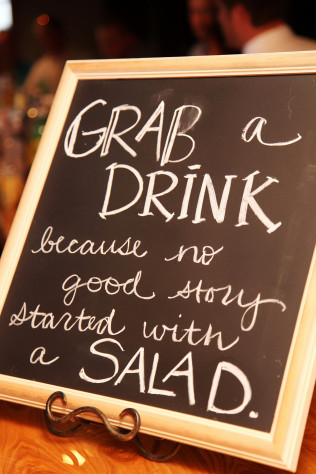 GRAB a
DRINK
because no
good story
started with
a SALAD.